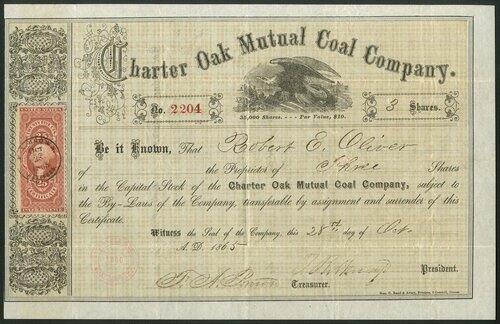 Charter Oak Mutual Coal Company.
No. 2204
35,000 Shares. - - - Par Value, $10.
3 Shares.
Be it Known, That Robert E. Oliver
of the Proprietor of Three Shares
in the Capital Stock of the Charter Oak Mutual Coal Company, subject to
the By-Laws of the Company, transferable by assignment and surrender of this
Certificate.
Witness the Seal of the Company, this 28th day of Oct.
A.D. 1865
President.
Treasurer.
25